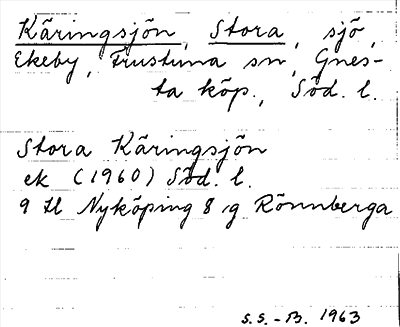 Käringsjön, Stora, sjö,
Ekeby, Frustuna sn, Gnes-
ta köp., Söd. l.
Stora Käringsjön
ek (1960) Söd. l.
9 H Nyköping 8 g Rönnberga
S.S.-B. 1963